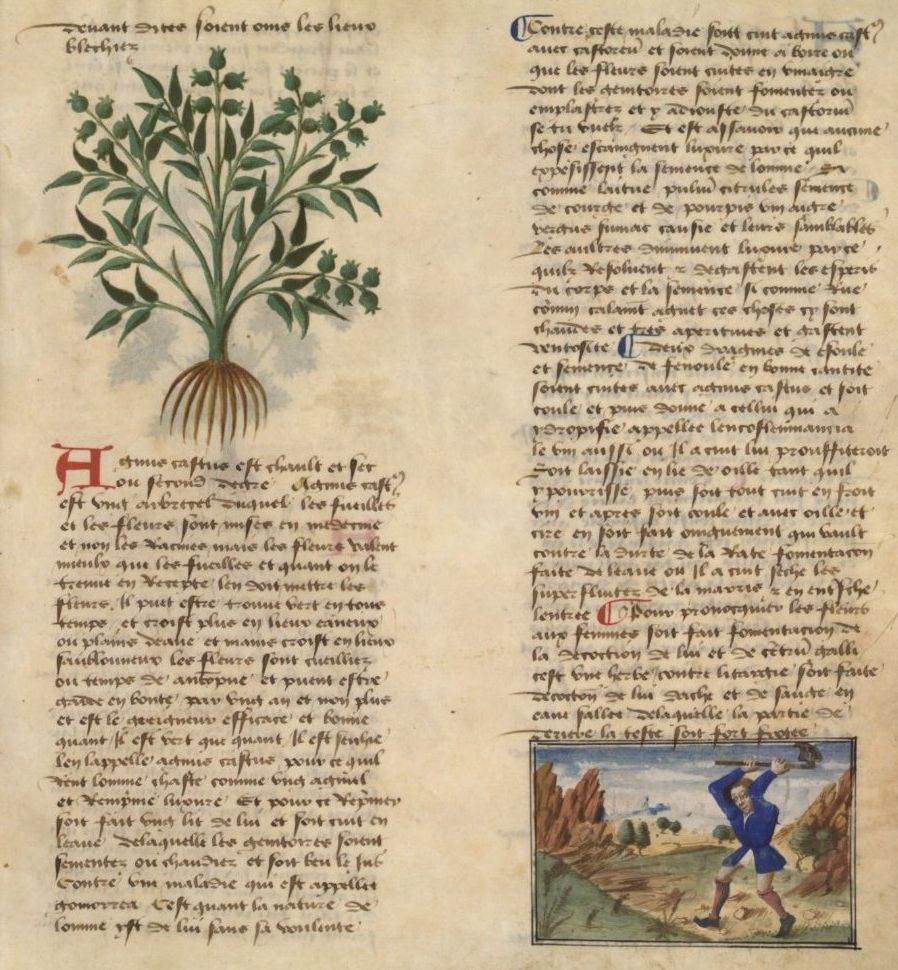 devant dites soient oins les lieux
blechiez
Agnus castus est chault et sec
ou second degre Agnus cast9
est ung arbrecel duquel les fueilles
et les fleurs sont mises en medecine
et non les Racines mais les fleurs valent
mieulx que les fueilles et quant on le
treuve en Recepte len doit mettre les
fleurs. Il puet estre trouve vert en tous
temps et croist plus en lieux eaueux
ou plains deaue et mains croist en lieux
saublonneux les fleurs sont cueillies
ou temps de et pueent estre
en bonte par ung an et non plus
et est le greigneur efficace et bonne
quant Il est vert que quant Il est seiche
len lappelle agnus castus pource quil
rent lomme chaste comme ung aignel
et Reprime luxure Et pour ce Reprimer
soit fait ung lit de lui et soit cuit en
leaue delaquelle les genitoires soient
fomentez ou chaudiez et soit beu le Jus
Contre une maladie qui est appellee
gomorrea Cest quant la nature de
lomme yst de lui sans sa voulente
Contre ceste maladie soit cuit agnus cast9
avec castoreu et soient donne a boire ou
que les fleurs soient cuites en vinaigre
dont les genitoires soient fomentez ou
emplastrez et y adiouste du castoriu
se tu veulx Et est assavoir que aucune
chose estaingnent luxure parce quil
espesissent la semence de lomme Et
comme laitue citrules semence
de courge et de pourpie vin aigre
vergus sumac canfre et leurs samblables
Les aultres diminuent luxure parce
quilz Resoluent et degastent les esperis
du corps et la semence si comme Rue
comin calamit agnet ces choses cy sont
chaudes et tres aperitives et gastent
ventosite Deux dragmes de esoule
et semence de fenoule en bonne cantite
soient cuites avec agnus castus et soit
coule et puis donne a cellui qui a
ydropisie appellee lencofleumancia
le vin aussi ou Il a cuit lui prouffiteroit
Soit laissie en lie de oille tant quil
y pourrisse, puis soit tout cuit en froit
vin et apres soit coule et avec oille et
cire en soit fait oingnement qui vault
contre la durte de la Rate fomentacon
faite de leaue ou Il a cuit seche les
superfluitez de la marris et en
lentree Pour provocquier les fleurs
aux femmes soit fait fomentacion de
la decoction de lui et de galli
cest une herbe contre litargie soit faite
decocton de lui dache et de sauge en
eaue sallee delaquelle la partie de
derriere la teste soit fort frotee